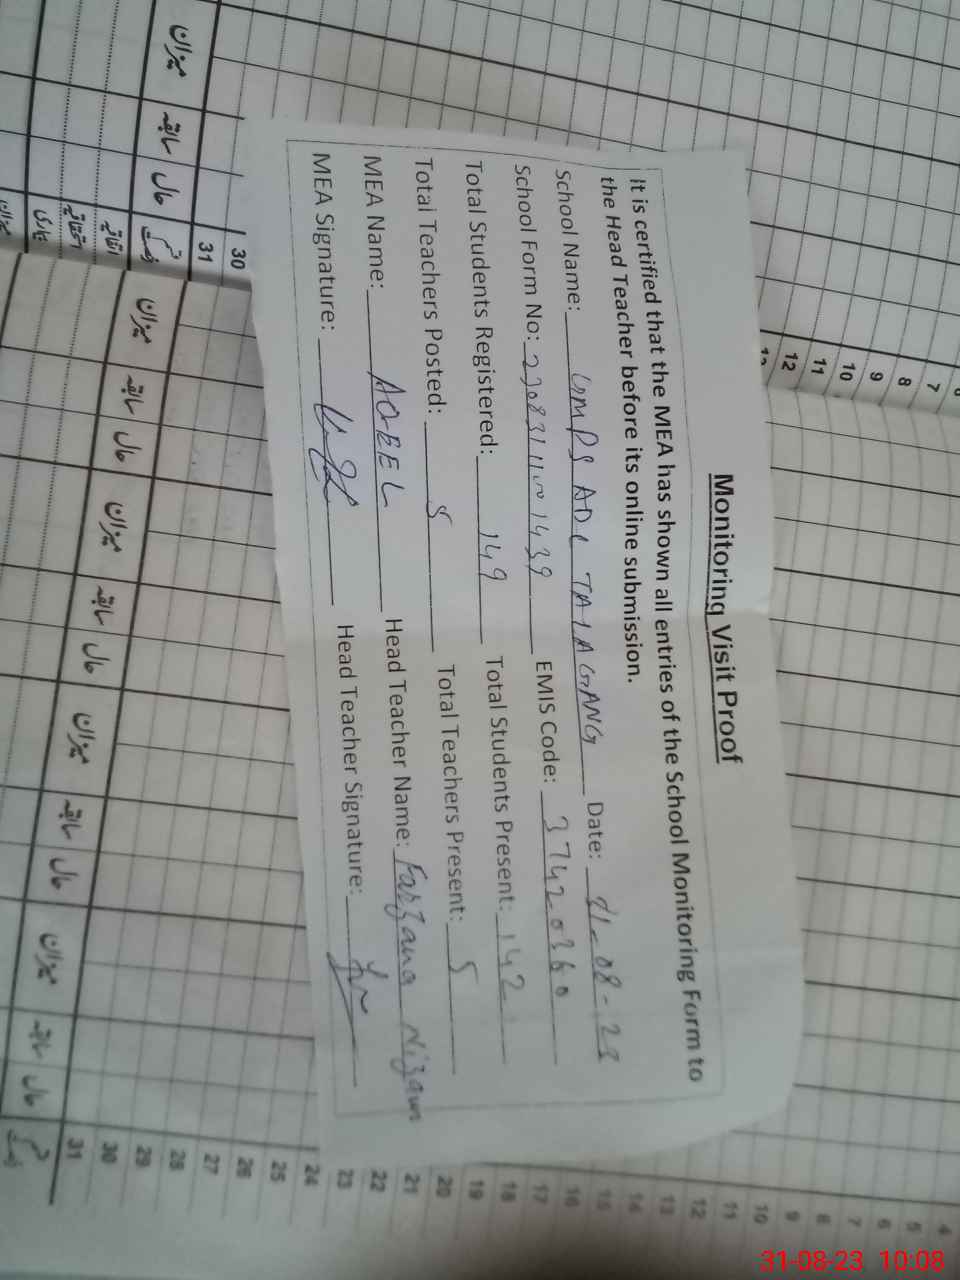 Monitoring Visit Proof
It is certified that the MEA has shown all entries of the School Monitoring Form to
the Head Teacher before its online submission.
School Name: GMPS ADL TALAGANG Date: 31-08-23
School Form No: EMIS Code: 37420360
Total Students Registered: 149 Total Students Present: 142
Total Teachers Posted: Total Teachers Present: 5
MEA Name: AQEEL Head Teacher Name: Farzana Nizam
MEA Signature: Head Teacher Signature:
میزان سابقہ حال
30
31
میزان سابقہ حال میزان سابقہ حال میزان سابقہ حال میزان سابقہ حال
7 8 9 10 11 12
4 5 6 7 8 9 10 11 12 13 14 15 16 17 18 19 20 21 22 23 24 25 26 27 28 29 30 31
31-08-23 10:08